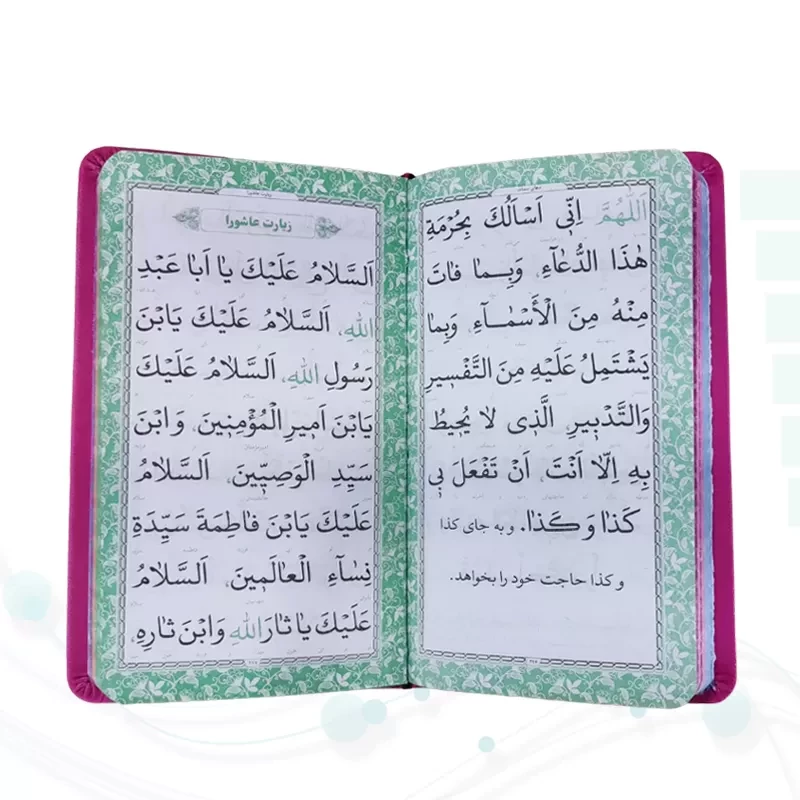 دعای سمات
اَللّٰهُمَّ اِنّٖى اَسْاَلُكَ بِحُرْمَةِ
هٰذَا الدُّعٰٓاءِ، وَبِمٰا فٰاتَ
مِنْهُ مِنَ الْاَسْمٰٓاءِ، وَبِمٰا
يَشْتَمِلُ عَلَيْهِ مِنَ التَّفْسٖيرِ
وَالتَّدْبٖيرِ، الَّذٖى لٰا يُحٖيطُ
بِهٖ اِلّٰا اَنْتَ، اَنْ تَفْعَلَ بٖى
كَذٰا وَ كَذٰا. و به جای کذا
و کذا حاجت خود را بخواهد.
زیارت عاشورا
زیارت عاشورا
اَلسَّلٰامُ عَلَيْكَ يٰا اَبٰا عَبْدِ
اللّٰهِ، اَلسَّلٰامُ عَلَيْكَ يَابْنَ
رَسُولِ اللّٰهِ، اَلسَّلٰامُ عَلَيْكَ
يَابْنَ اَمٖيرِ الْمُؤْمِنٖينَ، وَابْنَ
سَيِّدِ الْوَصِيّٖينَ، اَلسَّلٰامُ
عَلَيْكَ يَابْنَ فٰاطِمَةَ سَيِّدَةِ
نِسٰٓاءِ الْعٰالَمٖينَ، اَلسَّلٰامُ
عَلَيْكَ يٰا ثٰارَ اللّٰهِ وَابْنَ ثٰارِهٖ،